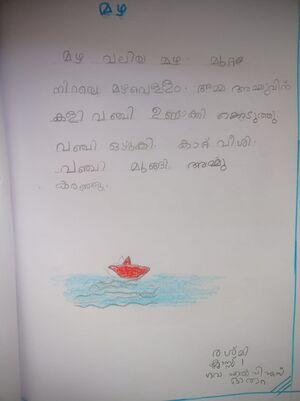 മഴ
മഴ വലിയ മഴ. മുറ്റം
നിറയെ മഴവെള്ളം. അമ്മ അമ്മുവിന്
കളി വഞ്ചി ഉണ്ടാക്കി കൊടുത്തു.
വഞ്ചി ഒഴുക്കി. കാറ്റ് വീശി.
വഞ്ചി മുങ്ങി. അമ്മു
കരഞ്ഞു.
രശ്മി
ക്ലാസ്സ് 1
ഗവ എൽ പി എസ്